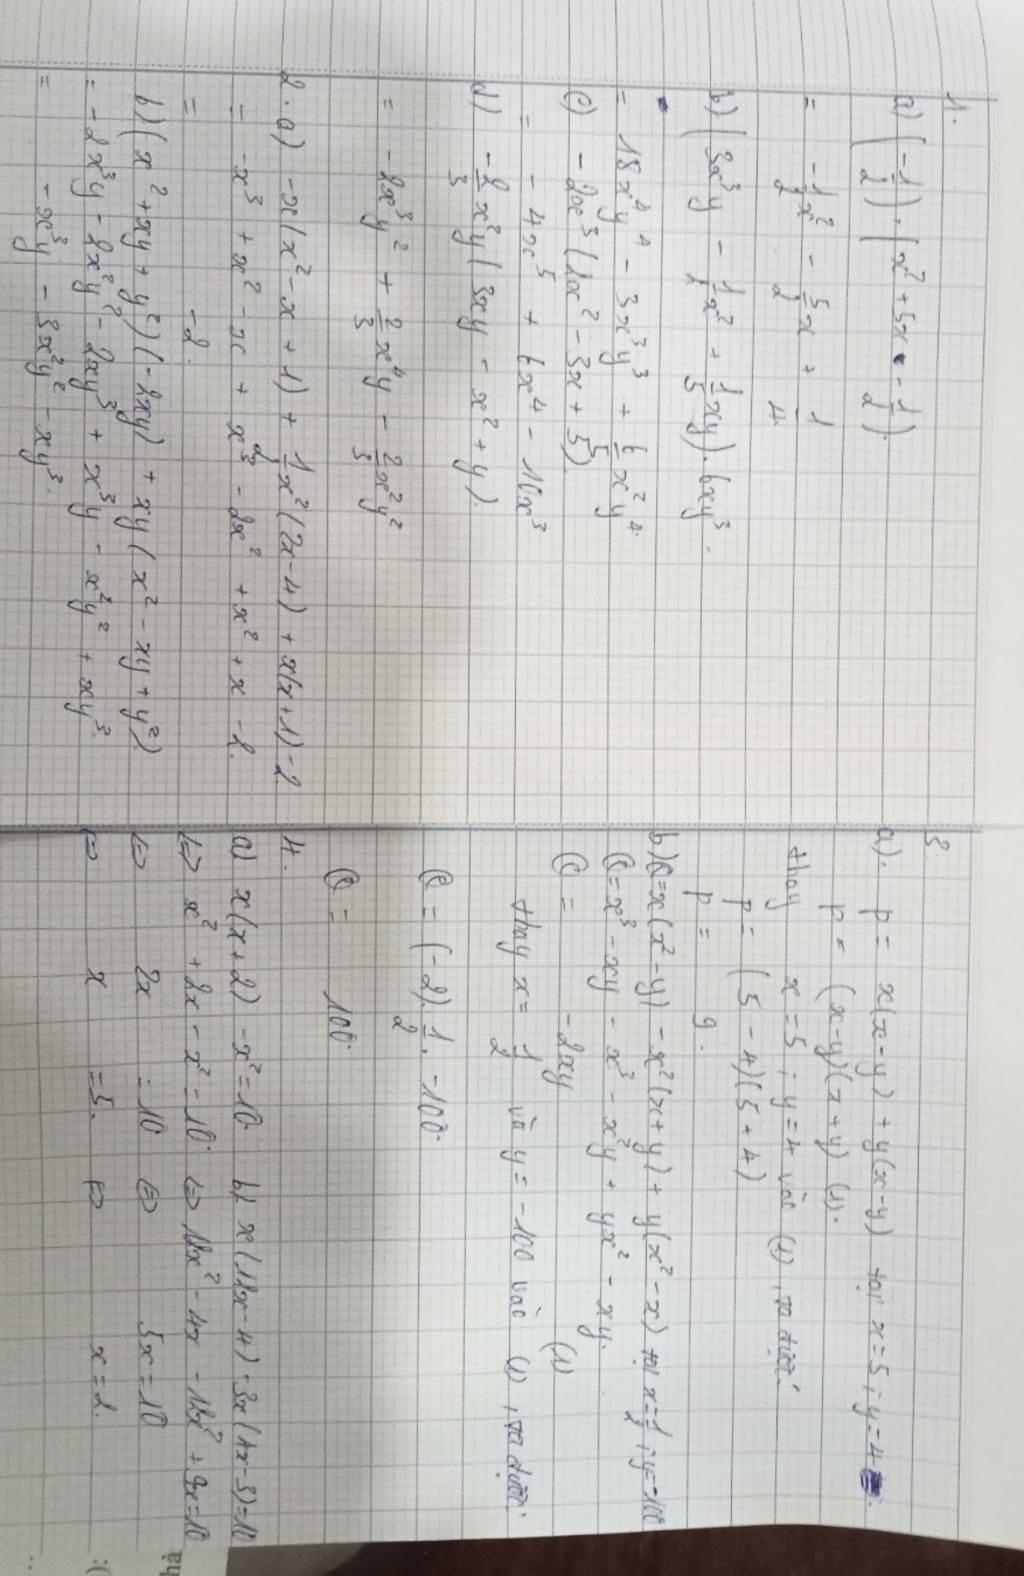 1.
a) (-1/2).(x² + 5x - 1/2).
= -1/2x² - 5/2x + 1/4
b) (3x³y - 1/2x² + 1/5xy).6xy³.
= 18x⁴y⁴ - 3x³y³ + 6/5x²y⁴
c) -2x³(2x² - 3x + 5)
= -4x⁵ + 6x⁴ - 10x³
d) -2/3x²y(3xy - x² + y).
= -2x³y² + 2/3x⁴y - 2/3x²y²
2.a) -x(x² - x + 1) + 1/2x²(2x - 4) + x(x + 1) - 2
= -x³ + x² - x + x³ - 2x² + x² + x - 2.
= -2.
b) (x² + xy + y²)(-2xy) + xy(x² - xy + y²).
= -2x³y - 2x²y² - 2xy³ + x³y - x²y² + xy³.
= -x³y - 3x²y² - xy³.
3.
a). P = x(x-y) + y(x-y) tại x = 5 ; y = 4
P = (x-y)(x+y) (1).
thay x = 5 ; y = 4 vào (1), ta được:
P = (5 - 4)(5 + 4)
P = 9.
b) Q = x(x² - y) - x²(x + y) + y(x² - x) tại x = 1/2 ; y = -100
Q = x³ - xy - x³ - x²y + yx² - xy.
Q = -2xy (1)
thay x = 1/2 và y = -100 vào (1), ta được:
Q = (-2).1/2.-100.
Q = 100.
4.
a) x(x+2) - x² = 10. b) x(12x - 4) - 3x(4x - 3) = 10
⇔ x² + 2x - x² = 10. ⇔ 12x² - 4x - 12x² + 9x = 10
⇔ 2x = 10 ⇔ 5x = 10
⇔ x = 5. ⇔ x = 2.
hà
:(
..